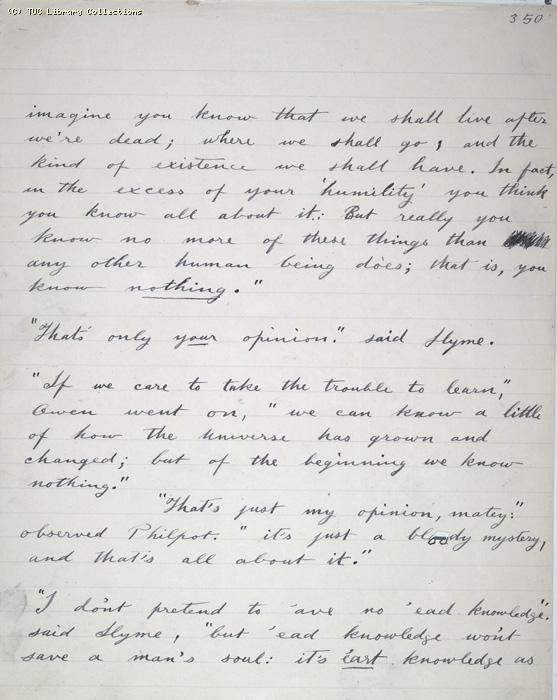 (C) TUC Library Collections
350
imagine you know that we shall live after
we're dead; where we shall go, and the
kind of existence we shall have. In fact,
in the excess of your 'humility' you think
you know all about it: But really you
know no more of these things than
any other human being does; that is, you
know nothing."
"That's only your opinion." said Slyme.
"If we care to take the trouble to learn,"
Owen went on, "we can know a little
of how the universe has grown and
changed; but of the beginning we know
nothing."
"That's just my opinion, matey:"
observed Philpot. "it's just a bloody mystery,
and that's all about it."
"I don't pretend to 'ave no 'ead knowledge".
said Slyme, "but 'ead knowledge won't
save a man's soul: it's 'art knowledge as